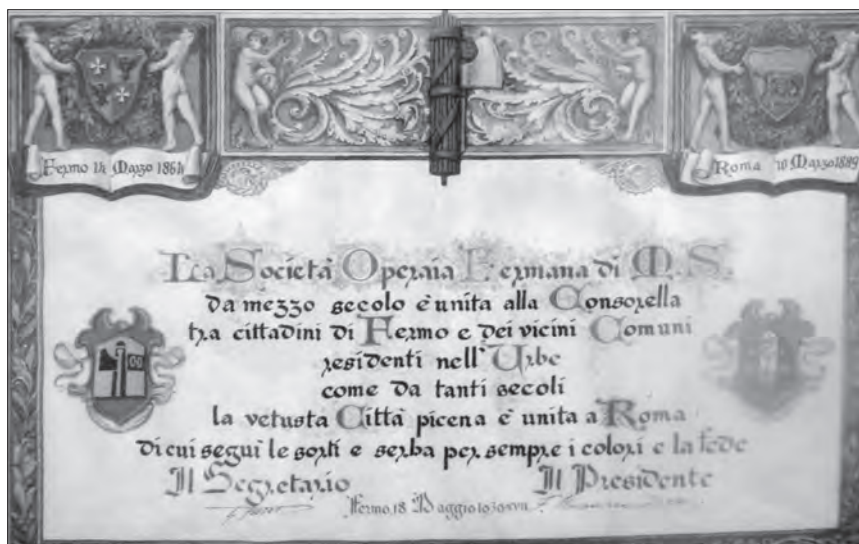 Fermo 14 Marzo 1861
Roma 10 Marzo 1889
La Società Operaia Fermana di M. S.
da mezzo secolo è unita alla Consorella
tra cittadini di Fermo e dei vicini Comuni
residenti nell' Urbe
come da tanti secoli
la vetusta Città picena è unita a Roma
di cui seguì le sorti e serba per sempre i colori e la fede
Il Segretario Il Presidente
Fermo, 18 Maggio